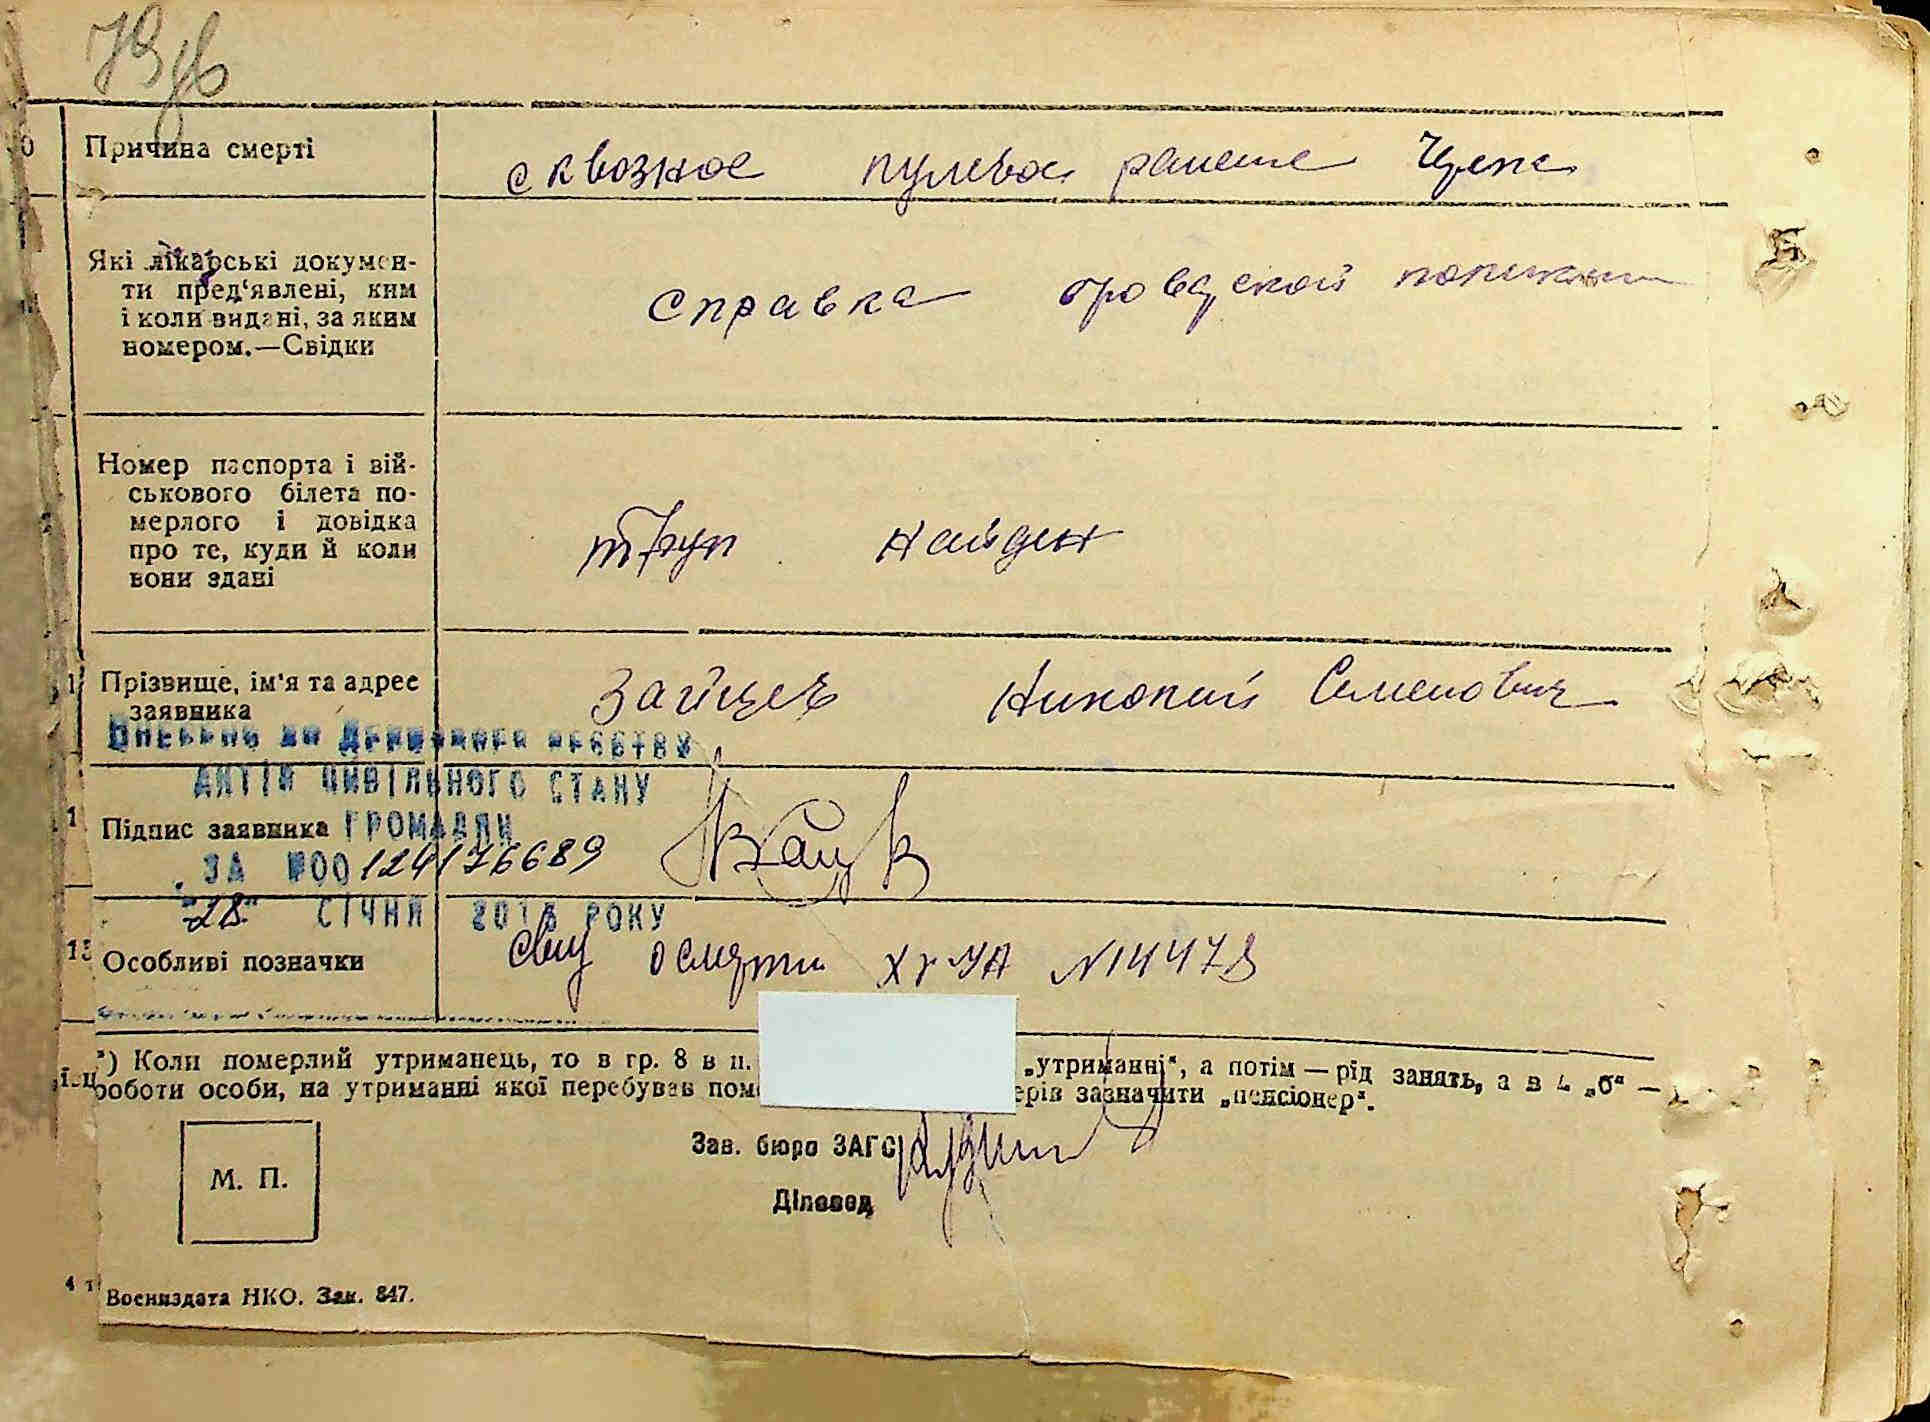 Причина смерті
сквозное пулевое ранение
Які лікарські докумен-
ти пред‘явлені, ким
і коли видані, за яким
номером.—Свідки
справка поликлин
Номер паспорта і вій-
ськового білета по-
мерлого і довідка
про те, куди й коли
вони здані
труп найден
Прізвище, ім'я та адрес
заявника
Зайцев Николай Семенович
Внесено до Державного реєстру
актів цивільного стану
Підпис заявника
громадян
за №00124176689
"28" січня 2015 року
Особливі позначки
свид о смерти ХГ УА №14478
*) Коли померлий утриманець, то в гр. 8 в п. „утриманні“, а потім — рід занять, а в п. „б“ —
роботи особи, на утриманні якої перебував пом ерів зазначити „пенсіонер“.
Зав. бюро ЗАГС
М. П.
Діловод
Воениздата НКО. Зак. 847.